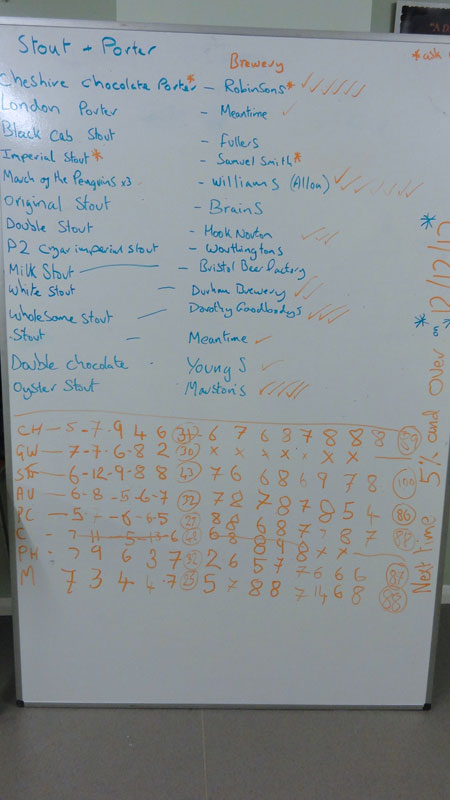 Stout + Porter
Brewery
*ask
Cheshire Chocolate Porter* - Robinsons*
London Porter - Meantime
Black Cab Stout - Fullers
Imperial Stout* - Samuel Smith*
March of the Penguins x3 - Williams (Alloa)
Original Stout - Brains
Double Stout - Hook Norton
P2 Czar imperial stout - Worthingtons
Milk Stout - Bristol Beer Factory
White Stout - Durham Brewery
Wholesome Stout - Dorothy Goodbodys
Stout - Meantime
Double Chocolate Youngs
Oyster Stout Marstons
CH - 5 - 7 - 9 4 6 6 7 6 8 7 8 8 8
GW - 7 - 7 - 6 - 8 2 30 x x x x x x x
6 - 12 - 9 - 8 - 8 43 7 6 6 8 6 9 7 8 100
AU - 6 - 8 - 5 - 6 - 7 32 7 8 7 8 7 8 5 4 86
PC - 5 - 6 - 6.5 8 8 6 8 7 8 7
PH - 9 6 3 7 2 6 5 7 7 6 6 6 87
M 7 3 4 4 7 25 5 7 8 8 7 14 6 8 88
Next Time 5% and Over * 12/12/12 *